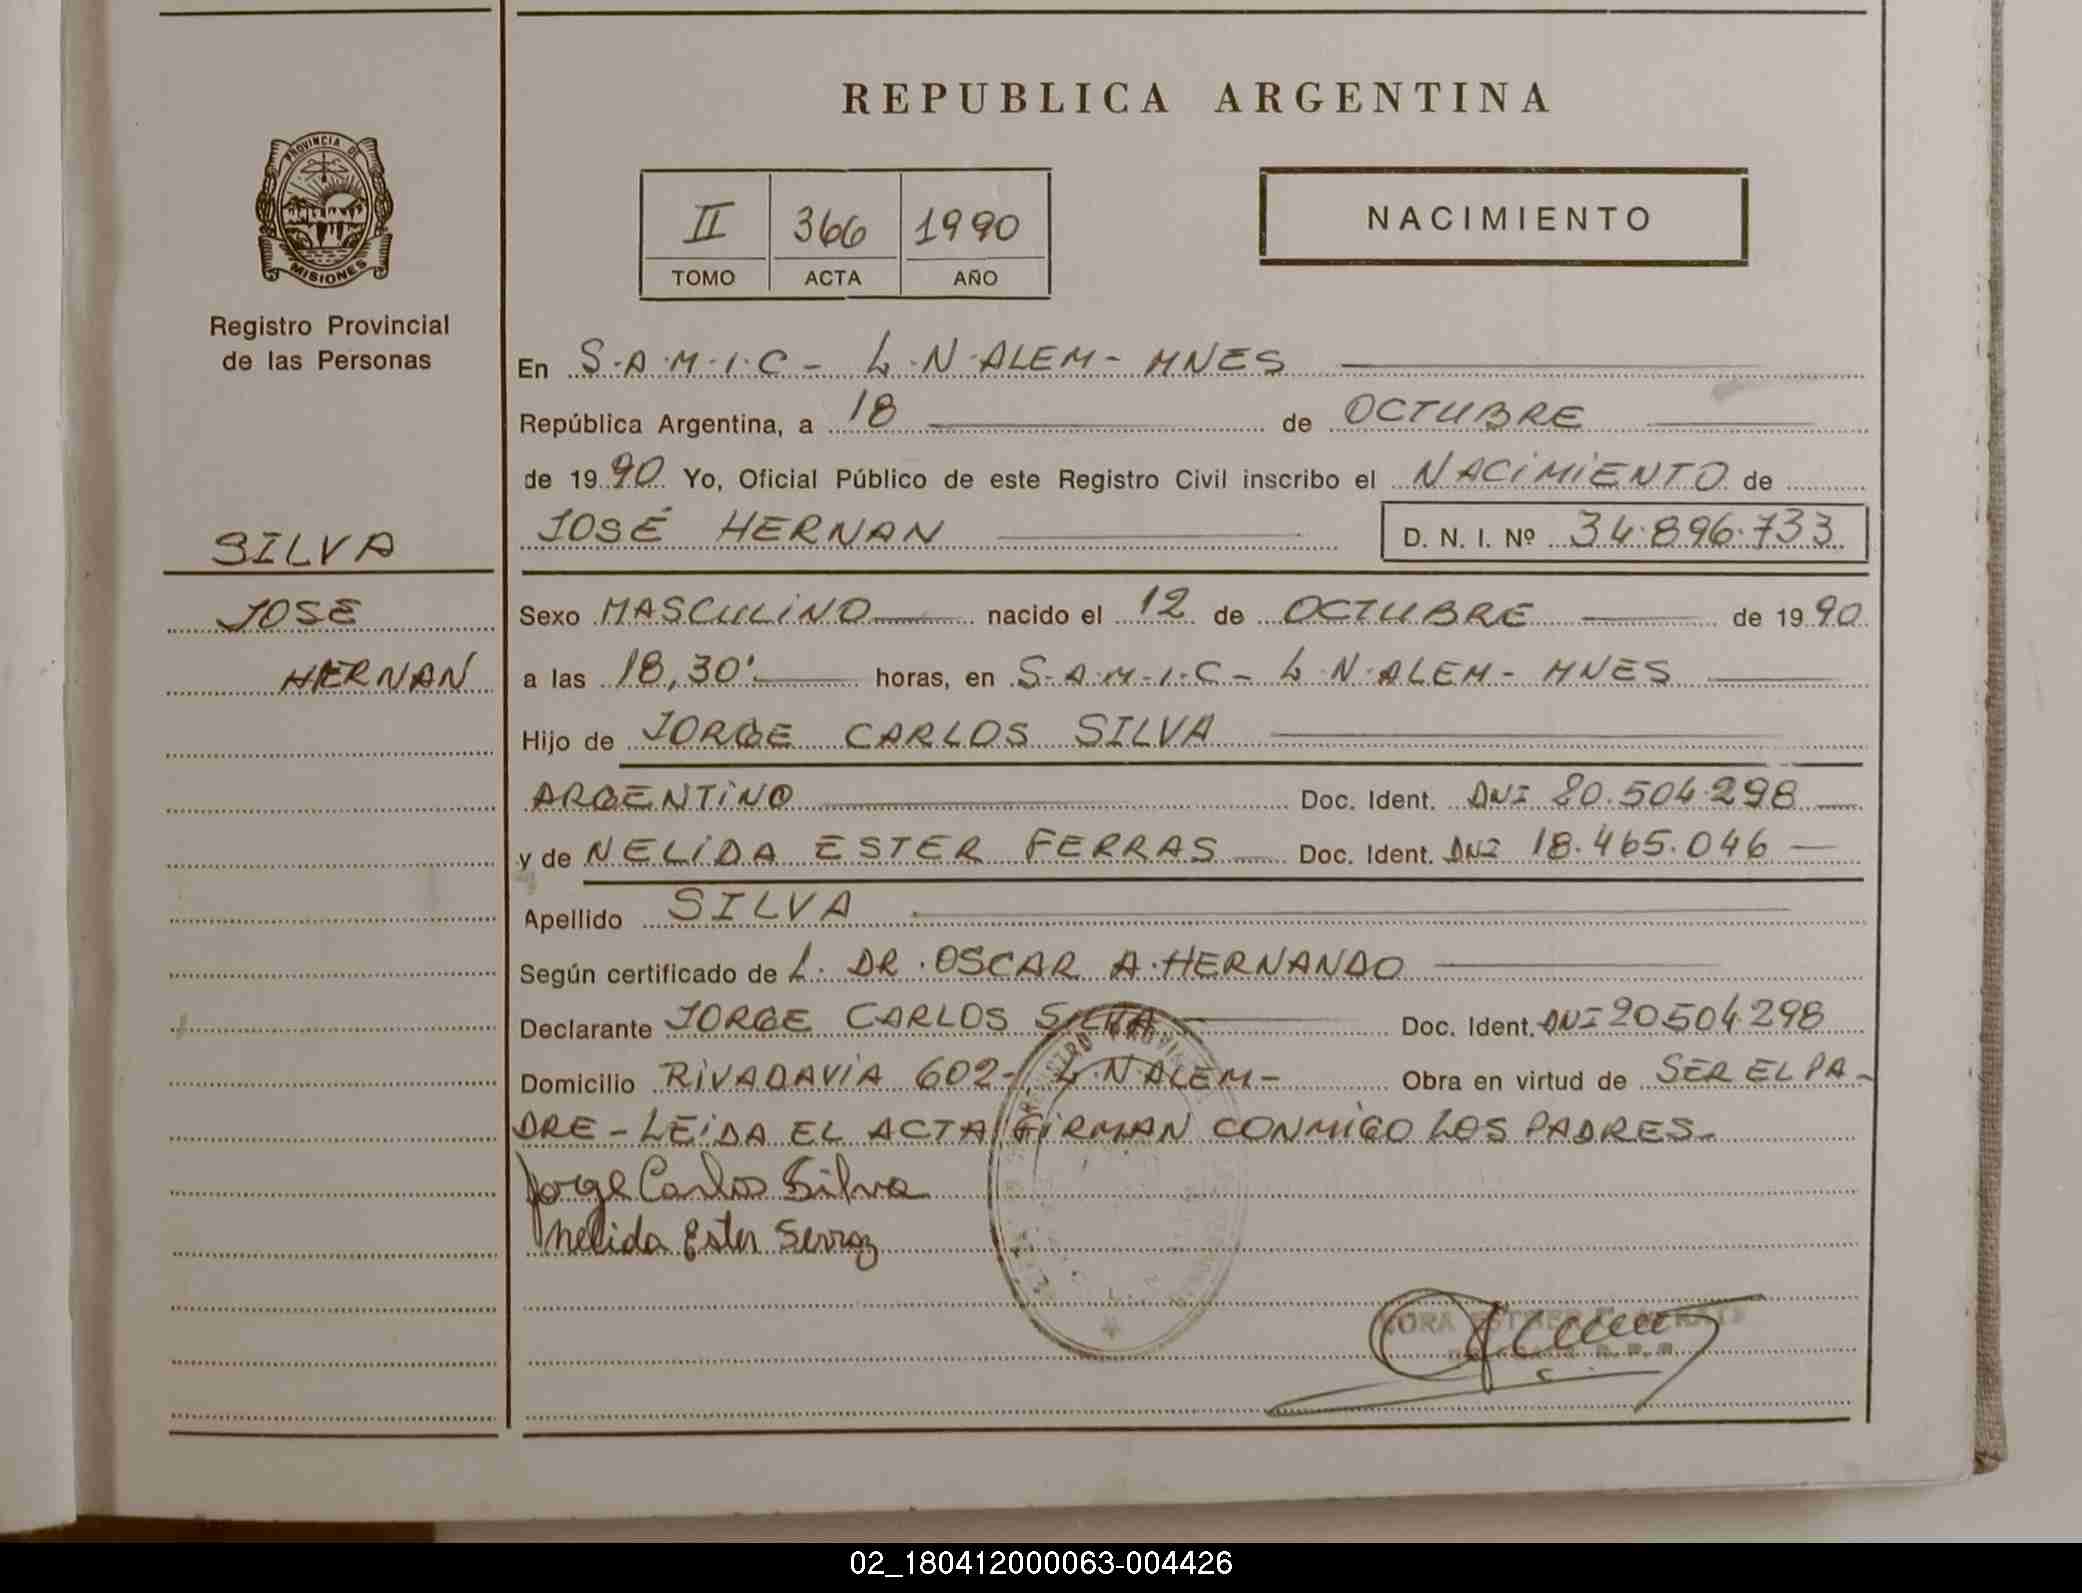 REPUBLICA ARGENTINA
PROVINCIA DE
MISIONES
Registro Provincial
de las Personas
II 366 1990
TOMO ACTA AÑO
NACIMIENTO
En S.A.M.I.C- L.N.ALEM- MNES
República Argentina, a 18 de OCTUBRE
de 1990 Yo, Oficial Público de este Registro Civil inscribo el NACIMIENTO de
JOSÉ HERNAN D. N. I. Nº 34.896.733
SILVA
JOSE
HERNAN
Sexo MASCULINO nacido el 12 de OCTUBRE de 1990
a las 18,30' horas, en S.A.M.I.C- L.N.ALEM- MNES
Hijo de JORGE CARLOS SILVA
ARGENTINO Doc. Ident. DNI 20.504.298
y de NELIDA ESTER FERRAS Doc. Ident. DNI 18.465.046
Apellido SILVA
Según certificado de L. DR. OSCAR A. HERNANDO
Declarante JORGE CARLOS SILVA Doc. Ident. DNI 20504.298
Domicilio RIVADAVIA 602- L.N.ALEM- Obra en virtud de SER EL PA-
DRE - LEIDA EL ACTA FIRMAN CONMIGO LOS PADRES-
Jorge Carlos Silva
Nelida Ester
02_180412000063-004426